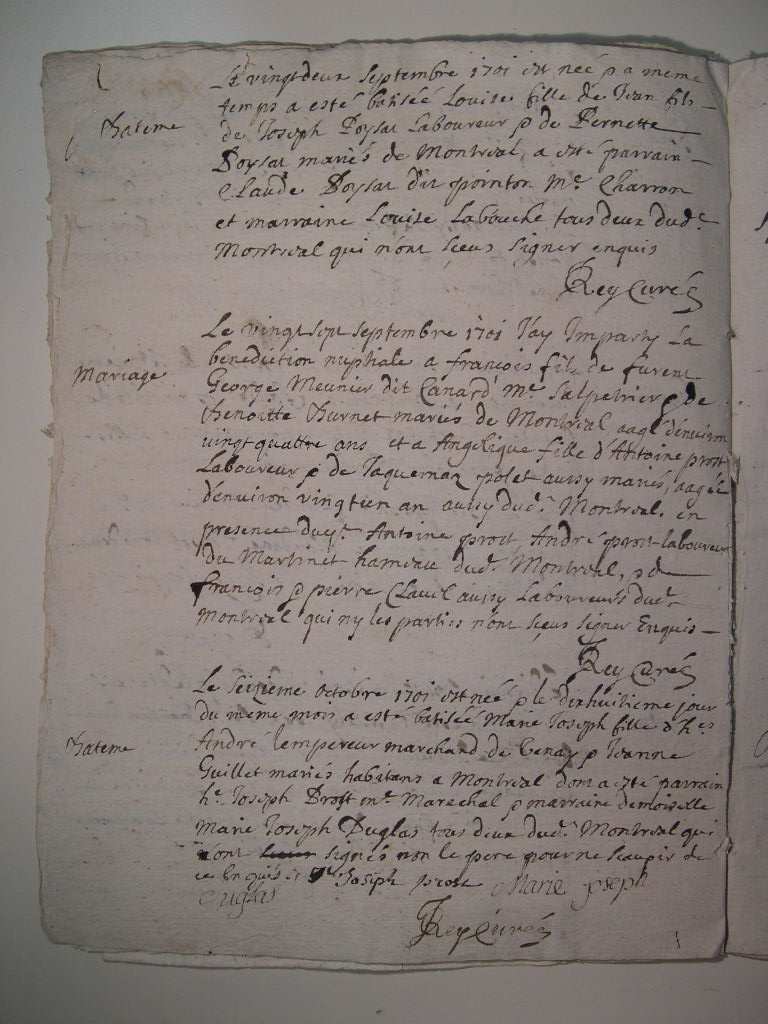 Le vingtdeux Septembre 1701 est neé p a meme
temps a esté batiseé Louise fille de Jean fils
Bateme
de Joseph Poysat Laboureur p de Pernette
Poysat mariés de Montreal, a esté parrain
Claude Poysat dit pointon Me. Charron
et marraine Louise Labouche tous deux dud.
Montreal qui n'ont sçeus signer enquis
Rey Curé
Le vingt sept septembre 1701 J'ay Imparty La
benediction nuptiale a françois fils de
Mariage
George Meunier dit Canard Me. Salpetrier p de
Benoitte Burnet mariés de Montreal aagé d'environ
vingt quattre ans et a Angelique fille d'Antoine prost
Laboureur p de Jaquemaz polet aussy mariés, aagée
d'environ vingt un an aussy dud. Montreal, en
presence dud. Antoine prost André prost laboureur
du Martinet hameau dud. Montreal, p de
françois p pierre Clavel aussy Laboureurs dud.
Montreal qui ny les parties n'ont sçeus signer Enquis
Rey Curé
Le Seizieme octobre 1701 est neé p le dixhuitieme jour
du meme mois a esté batiseé Marie Joseph fille d'h.
Bateme
André lempereur marchand de p Jeanne
Guillet mariés habitans a Montreal dont a esté parrain
h. Joseph Prost me. Marechal p marraine demoiselle
Marie Joseph Duglas tous deux dud. Montreal qui
n'ont signés non le pere pour ne scavoir de
ce Enquis Joseph prost Marie Joseph
Duglas
Rey Curé